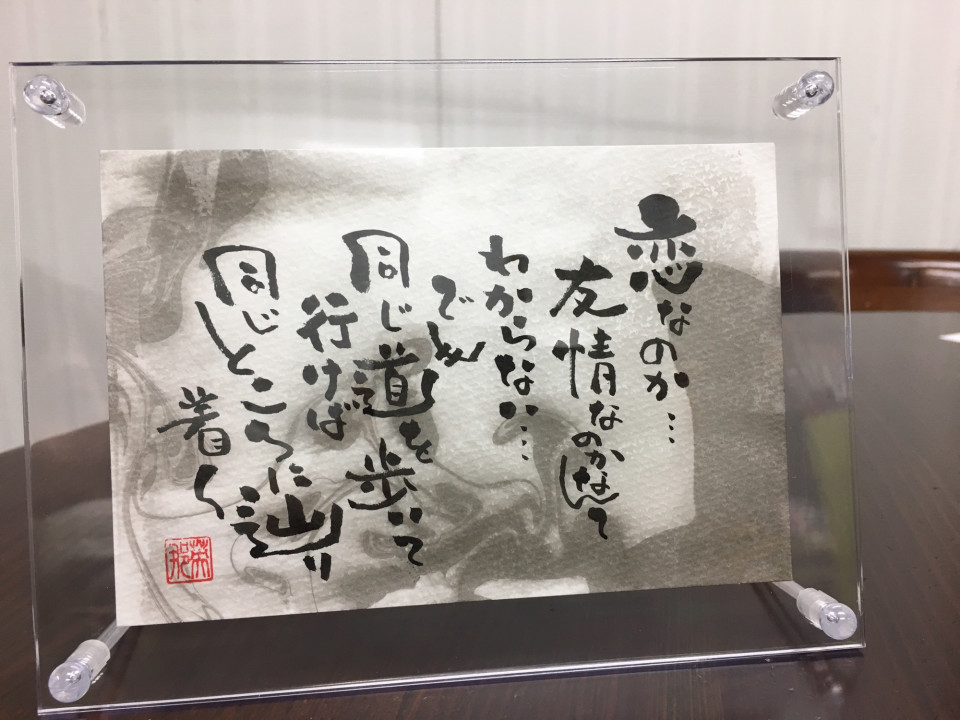 恋なのか…
友情なのかなんて
わからない…
でも
同じ道を歩いて
行けば
同じところに辿り
着く